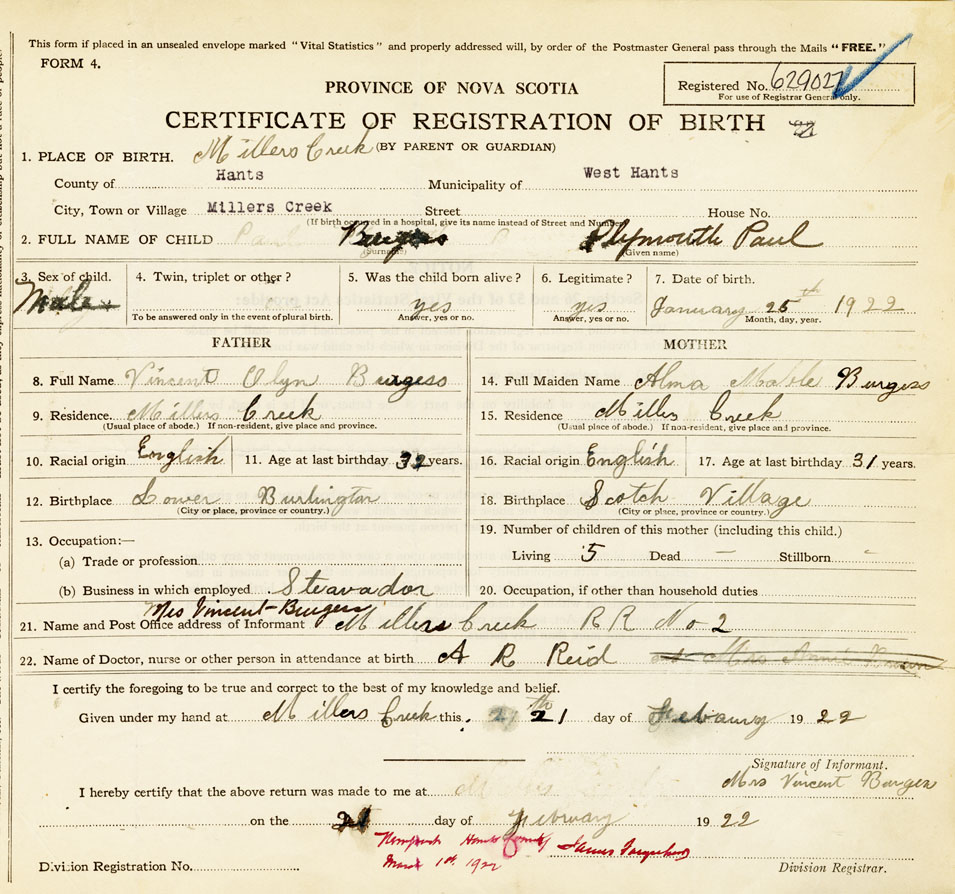 This form if placed in an unsealed envelope marked "Vital Statistics" and properly addressed will, by order of the Postmaster General pass through the Mails "FREE."
FORM 4.
Registered No. 629027
For use of Registrar General only.
PROVINCE OF NOVA SCOTIA
CERTIFICATE OF REGISTRATION OF BIRTH
(BY PARENT OR GUARDIAN)
1. PLACE OF BIRTH. Millers Creek
County of Hants Municipality of West Hants
City, Town or Village Millers Creek Street House No.
(If birth occurred in a hospital, give its name instead of Street and Number)
2. FULL NAME OF CHILD Paul Burgess Plymouth Paul
(Surname) (Given name)
3. Sex of child. 4. Twin, triplet or other? 5. Was the child born alive? 6. Legitimate? 7. Date of birth.
Male yes yes January 25th 1922
To be answered only in the event of plural birth. Answer, yes or no. Answer, yes or no. Month, day, year.
FATHER MOTHER
8. Full Name Vincent Olyn Burgess 14. Full Maiden Name Alma Mable Burgess
9. Residence. Millers Creek 15. Residence Millers Creek
(Usual place of abode.) If non-resident, give place and province. (Usual place of abode.) If non-resident, give place and province.
10. Racial origin English 11. Age at last birthday 32 years. 16. Racial origin English 17. Age at last birthday 31 years.
12. Birthplace Lower Burlington 18. Birthplace Scotch Village
(City or place, province or country.) (City or place, province or country.)
19. Number of children of this mother (including this child.)
13. Occupation:—
Living 5 Dead — Stillborn -
(a) Trade or profession
(b) Business in which employed Steavador 20. Occupation, if other than household duties
Mrs Vincent Burgess
21. Name and Post Office address of Informant Millers Creek RR No 2
22. Name of Doctor, nurse or other person in attendance at birth A R Reid Mrs Annie
I certify the foregoing to be true and correct to the best of my knowledge and belief.
Given under my hand at Millers Creek this 21 day of Febaury 1922
Signature of Informant.
Mrs Vincent Burgess
I hereby certify that the above return was made to me at
on the 21 day of Febuary 1922
March 1st 1922 James
Division Registration No. Division Registrar.